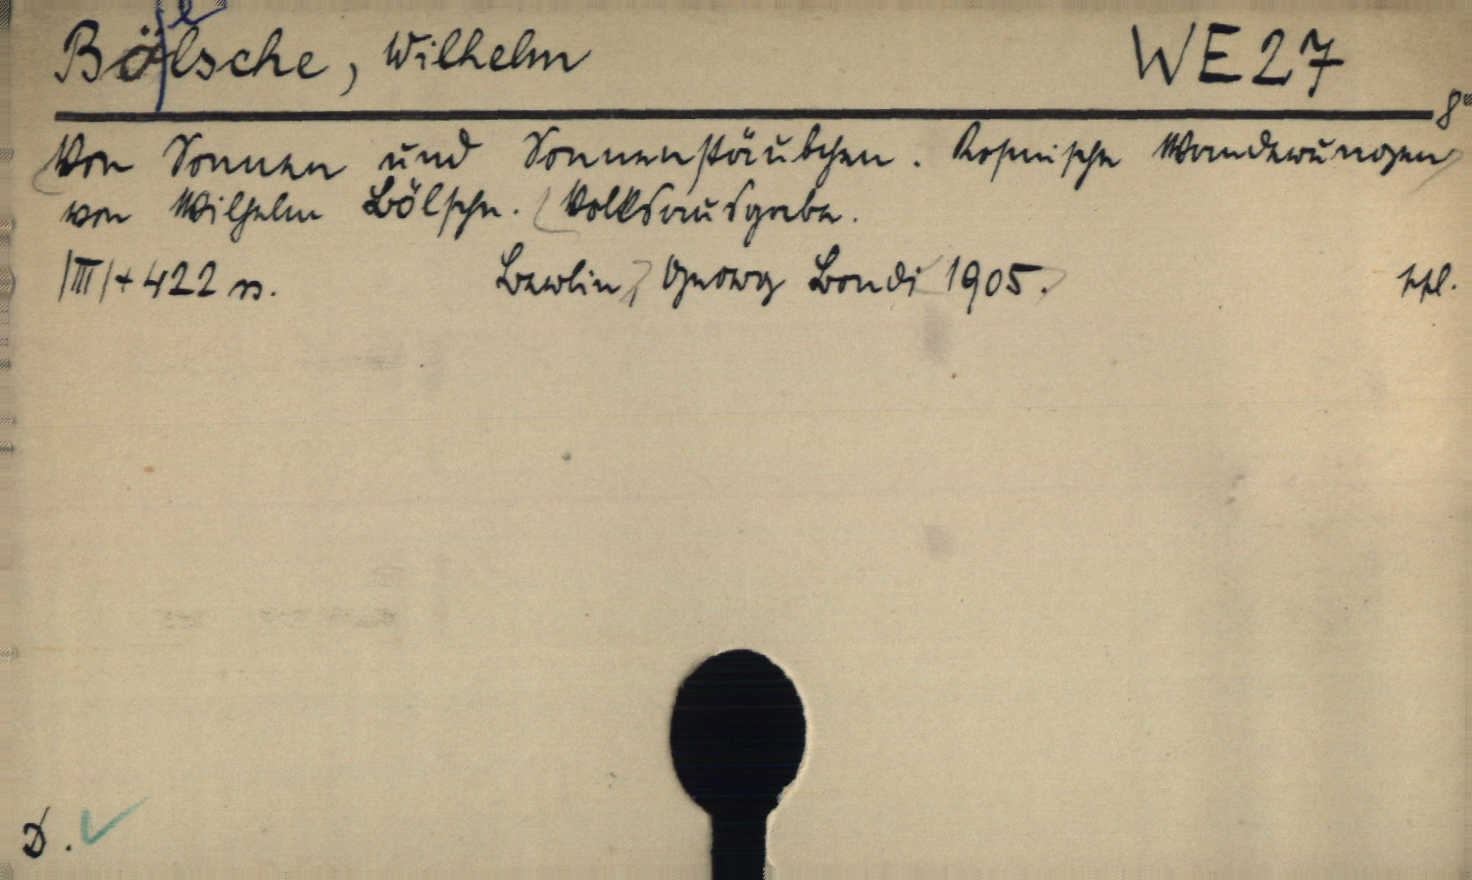 Bölsche, Wilhelm WE 27
e
8°
Von Sonnen und Sonnenstäubchen. Kosmische Wanderungen
von Wilhelm Bölsche. Volksausgabe.
|III|+422 s. Berlin, Georg Bondi 1905. ppl.
D.